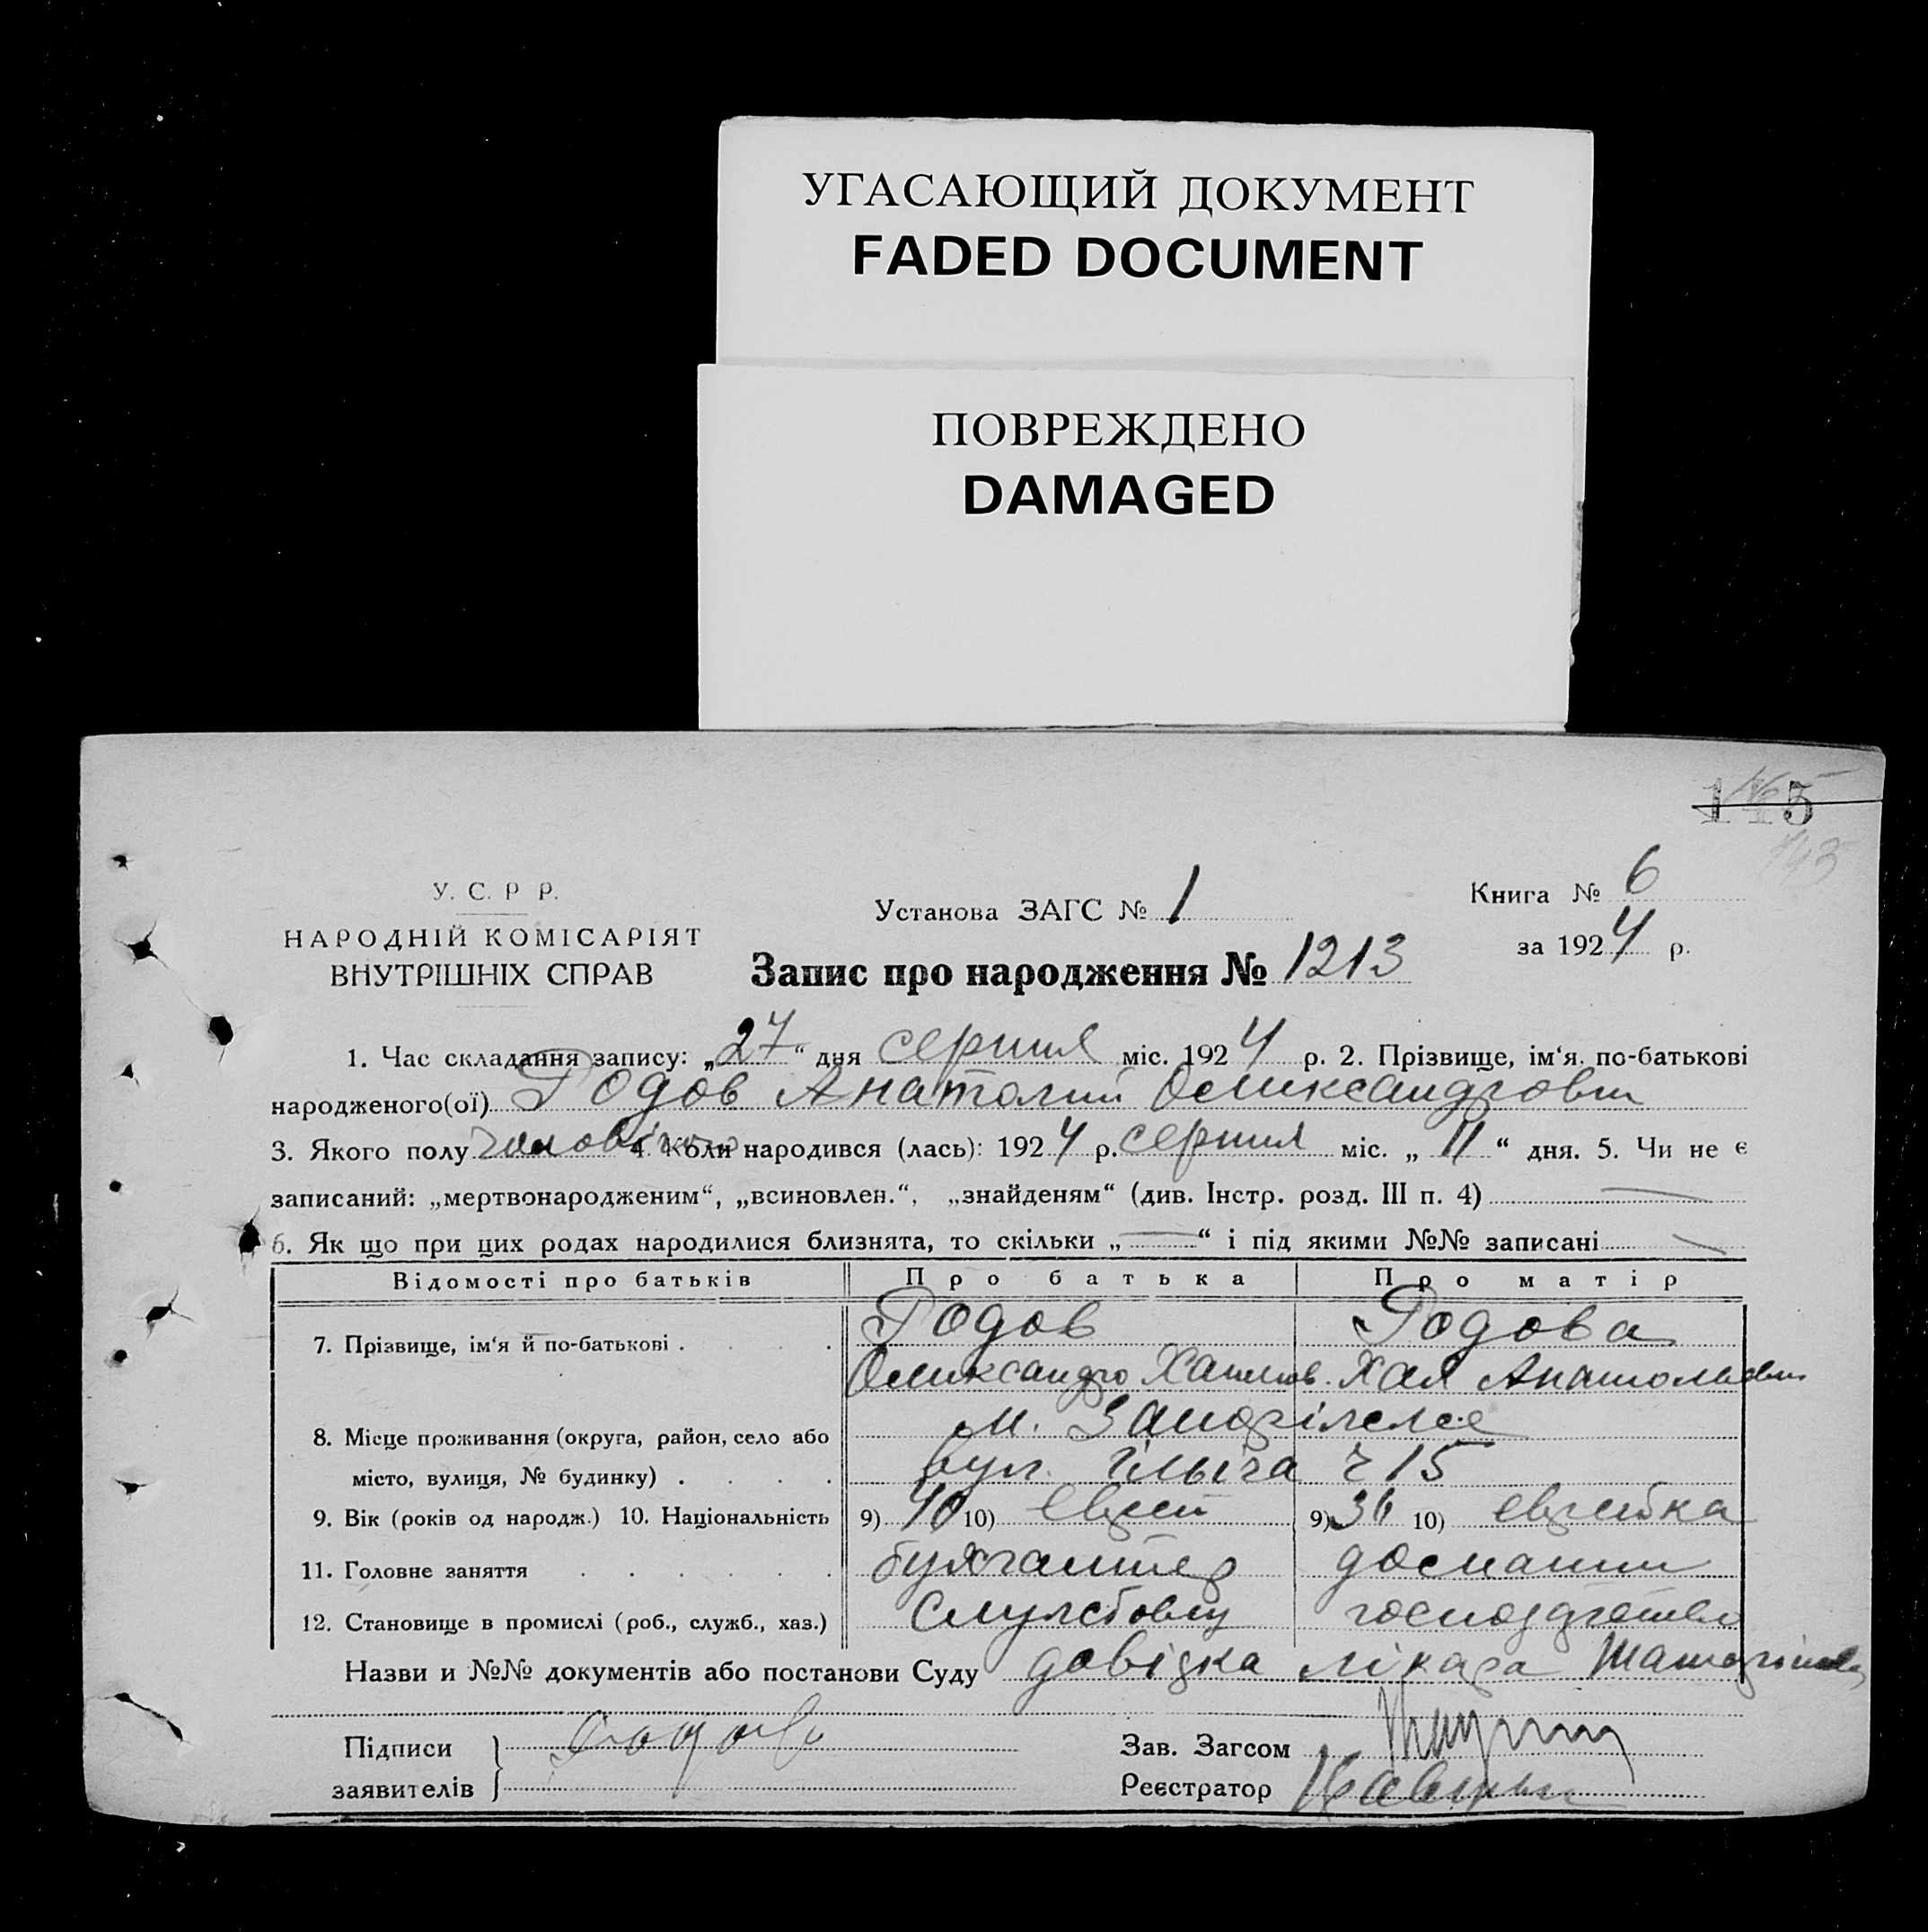 УГАСАЮЩИЙ ДОКУМЕНТ
FADED DOCUMENT
ПОВРЕЖДЕНО
DAMAGED
145
У. С. Р Р.
НАРОДНІЙ КОМІСАРІЯТ
ВНУТРІШНІХ СПРАВ
Установа ЗАГС № 1
Книга № 6
за 1924 р.
Запис про народження № 1213
1. Час складання запису: „27“ дня серпня міс. 1924 р. 2. Прізвище, ім‘я. по-батькові
народженого(ої) Родов Анатолий Олександрович
3. Якого полу чоловічого 4. Коли народився (лась): 1924 р. серпня міс. „11“ дня. 5. Чи не є
записаний: „мертвонародженим“, „всиновлен.“, „знайденям“ (див. Інстр. розд. III п. 4)
6. Як що при цих родах народилися близнята, то скільки „—“ і під якими №№ записані
Відомості про батьків Про батька Про матір
7. Прізвище, ім‘я й по-батькові . . . . Родов Родова
Олександр Хая Анатольевн
8. Місце проживання (округа, район, село або м. Запоріжже
місто, вулиця, № будинку) . . . . вул. Ілліча ч 15
9. Вік (років од народж.) 10. Національність 9) 40 10) еврей 9) 36 10) еврейка
11. Головне заняття . . . . . . бухгалтер домашн
12. Становище в промислі (роб., служб., хаз.) службовец господарство
Назви и №№ документів або постанови Суду довідка лікара
Підписи
заявителів
Родов
Зав. Загсом
Реєстратор